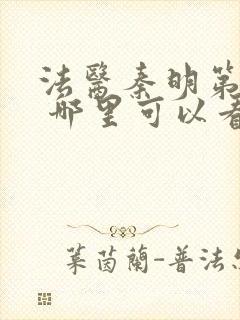 法醫秦明第
哪里可以看
葉茵蘭-普法